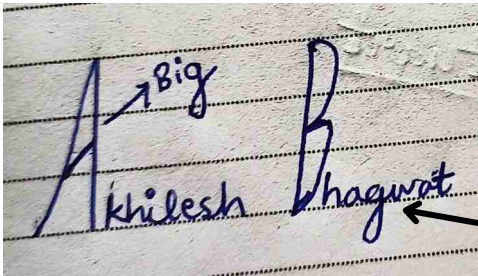 Big
Akhilesh Bhagwat